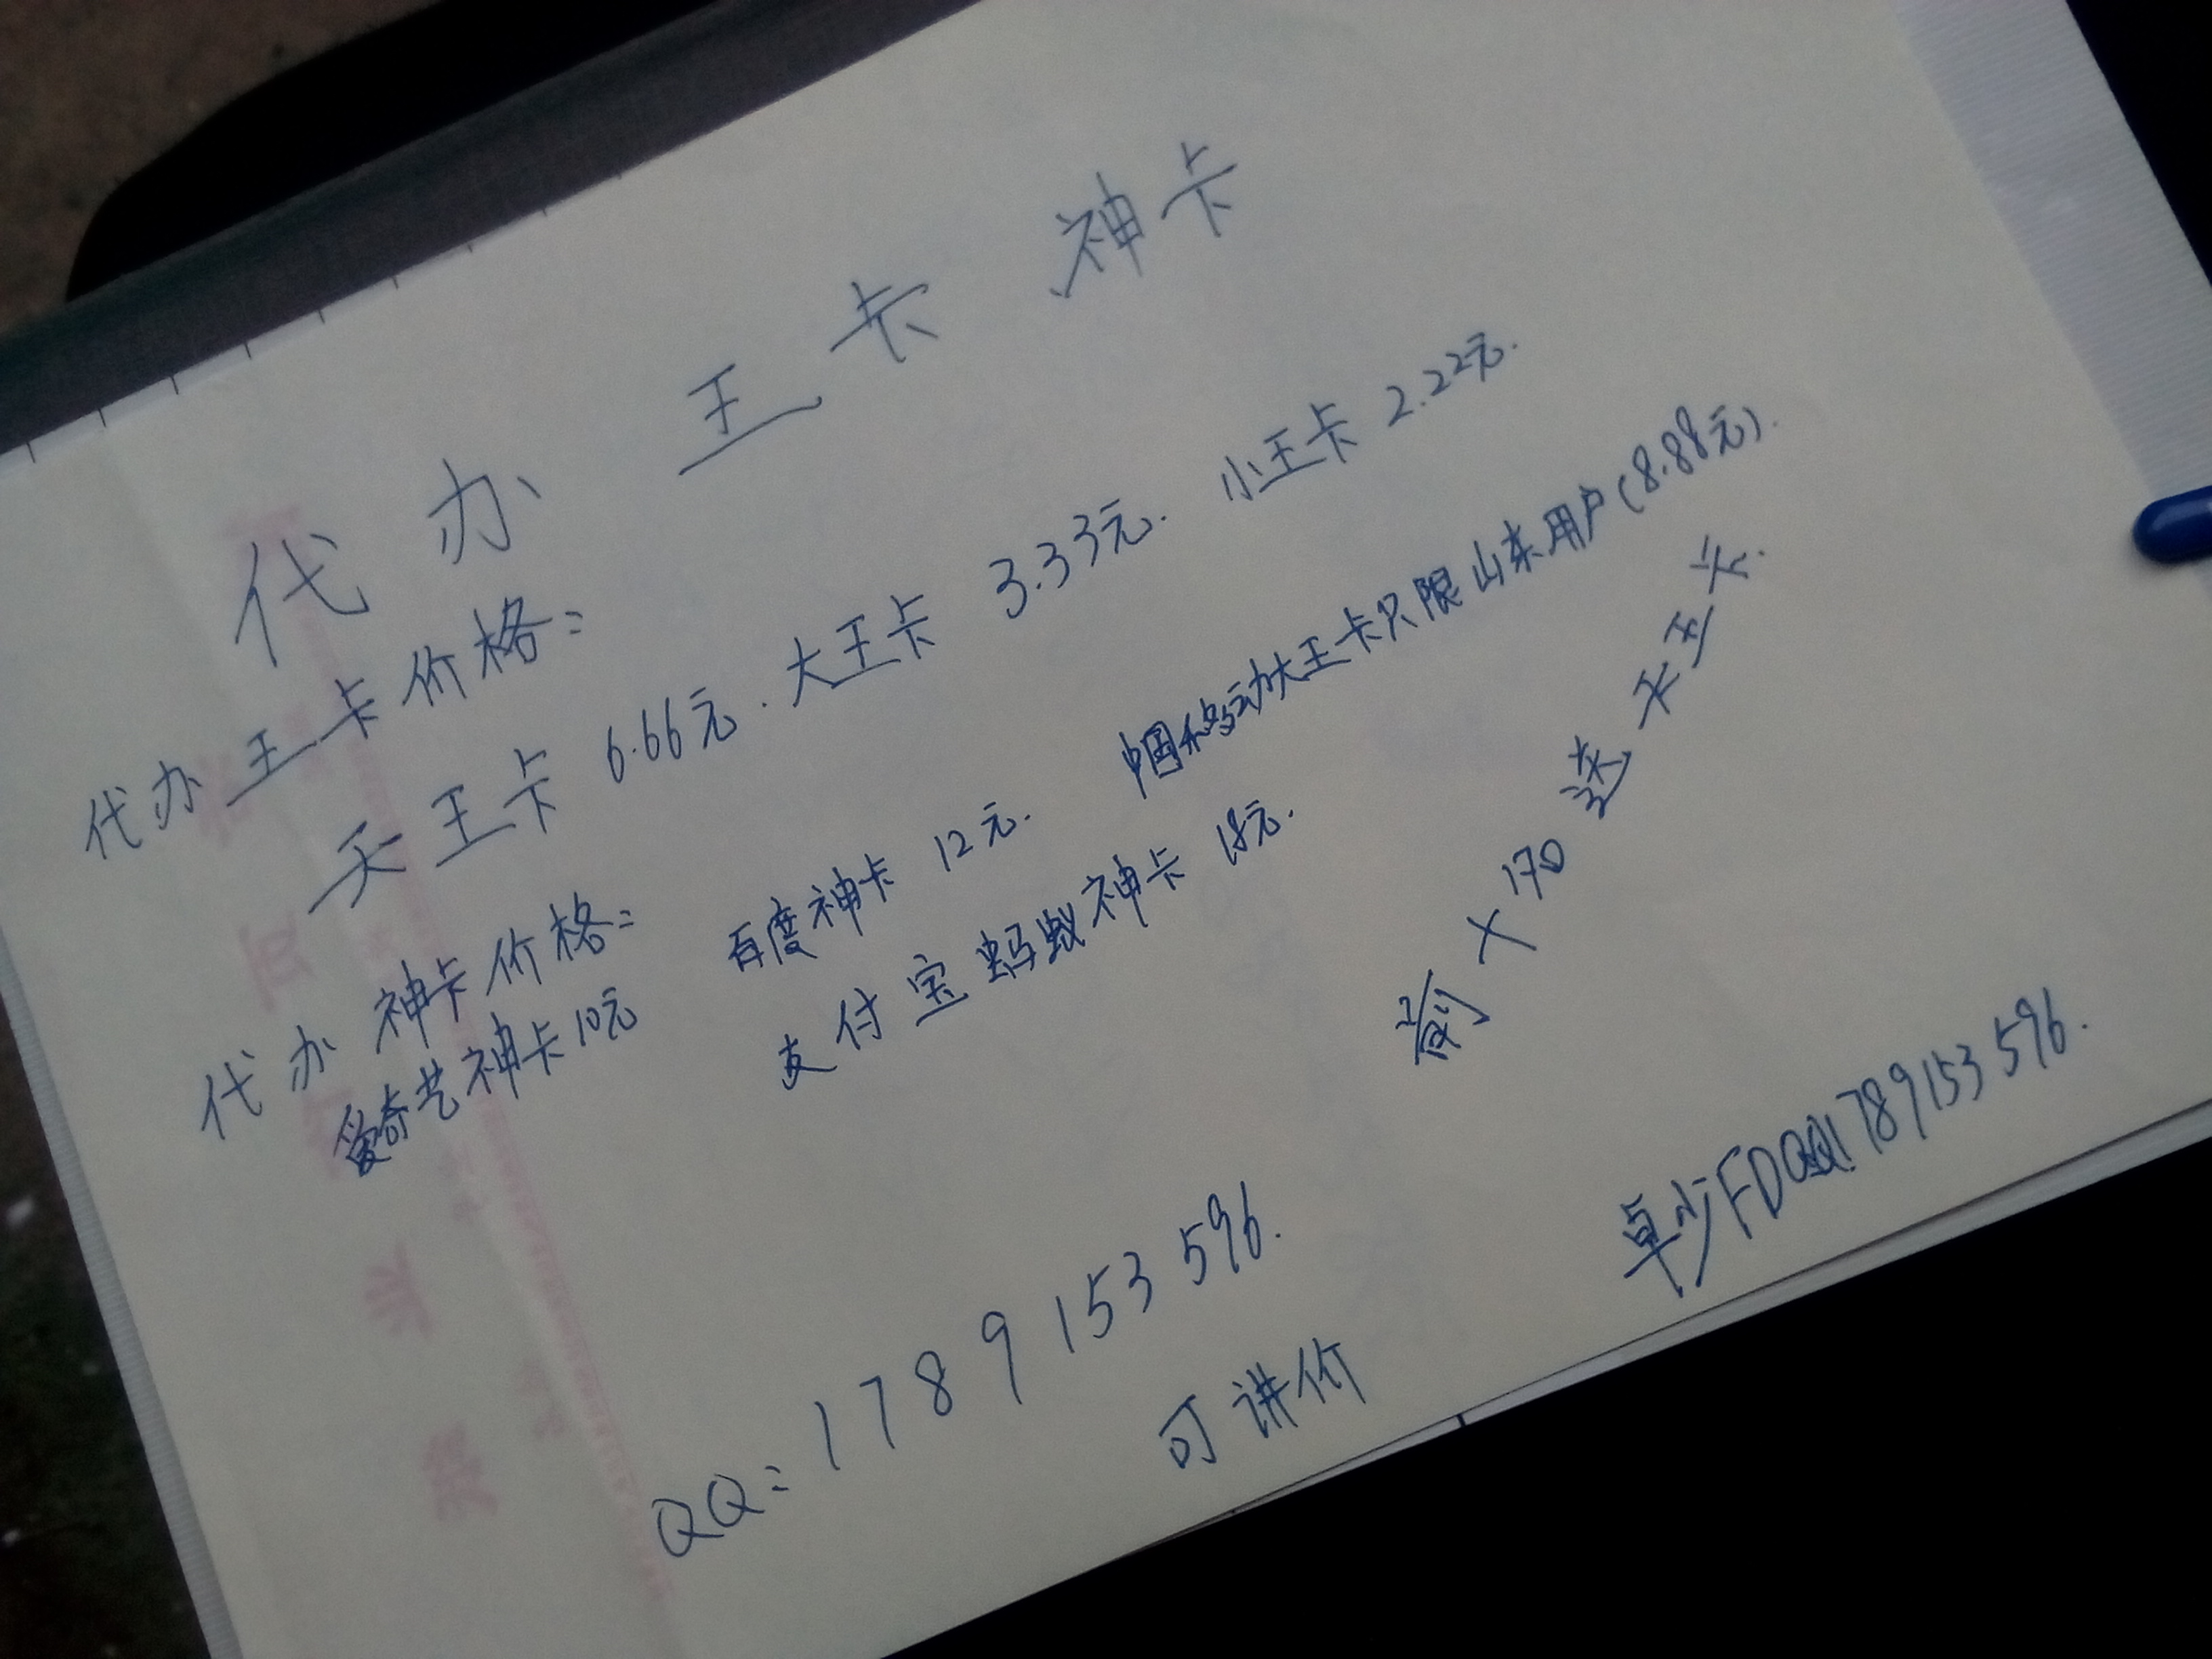 代办王卡 神卡
代办王卡价格:
天王卡 6.66元. 大王卡 3.33元. 小王卡 2.22元.
中国移动大王卡只限山东用户(8.88元).
代办神卡价格:
爱奇艺神卡10元 百度神卡 12元.
支付宝蚂蚁神卡 18元.
X170 送天王卡.
QQ: 1789153596.
可讲价
卓少FDQQ1789153596.